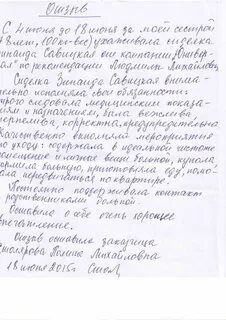 Отзыв
С 4 июня по 18 июня за моей сестрой
(78 лет, 100 кг вес) ухаживала сиделка
Зинаида Савицкая от компании "Универ-
сал" по рекомендации Людмилы Михайловны.
Сиделка Зинаида Савицкая внима-
тельно исполняла свои обязанности:
строго следовала медицинским показа-
ниям и назначениям, была вежлива,
терпелива, корректна, предупредительна.
Качественно выполняла мероприятия
по уходу: содержала в идеальной чистоте
помещение и личные вещи больной, купала,
кормила больную, приготовляла еду, помо-
гала передвигаться по квартире.
Постоянно поддерживала контакт
с родственниками больной.
Оставила о себе очень хорошее
впечатление.
Отзыв оставила заказчица
Столярова Полина Михайловна
18 июня 2015г.